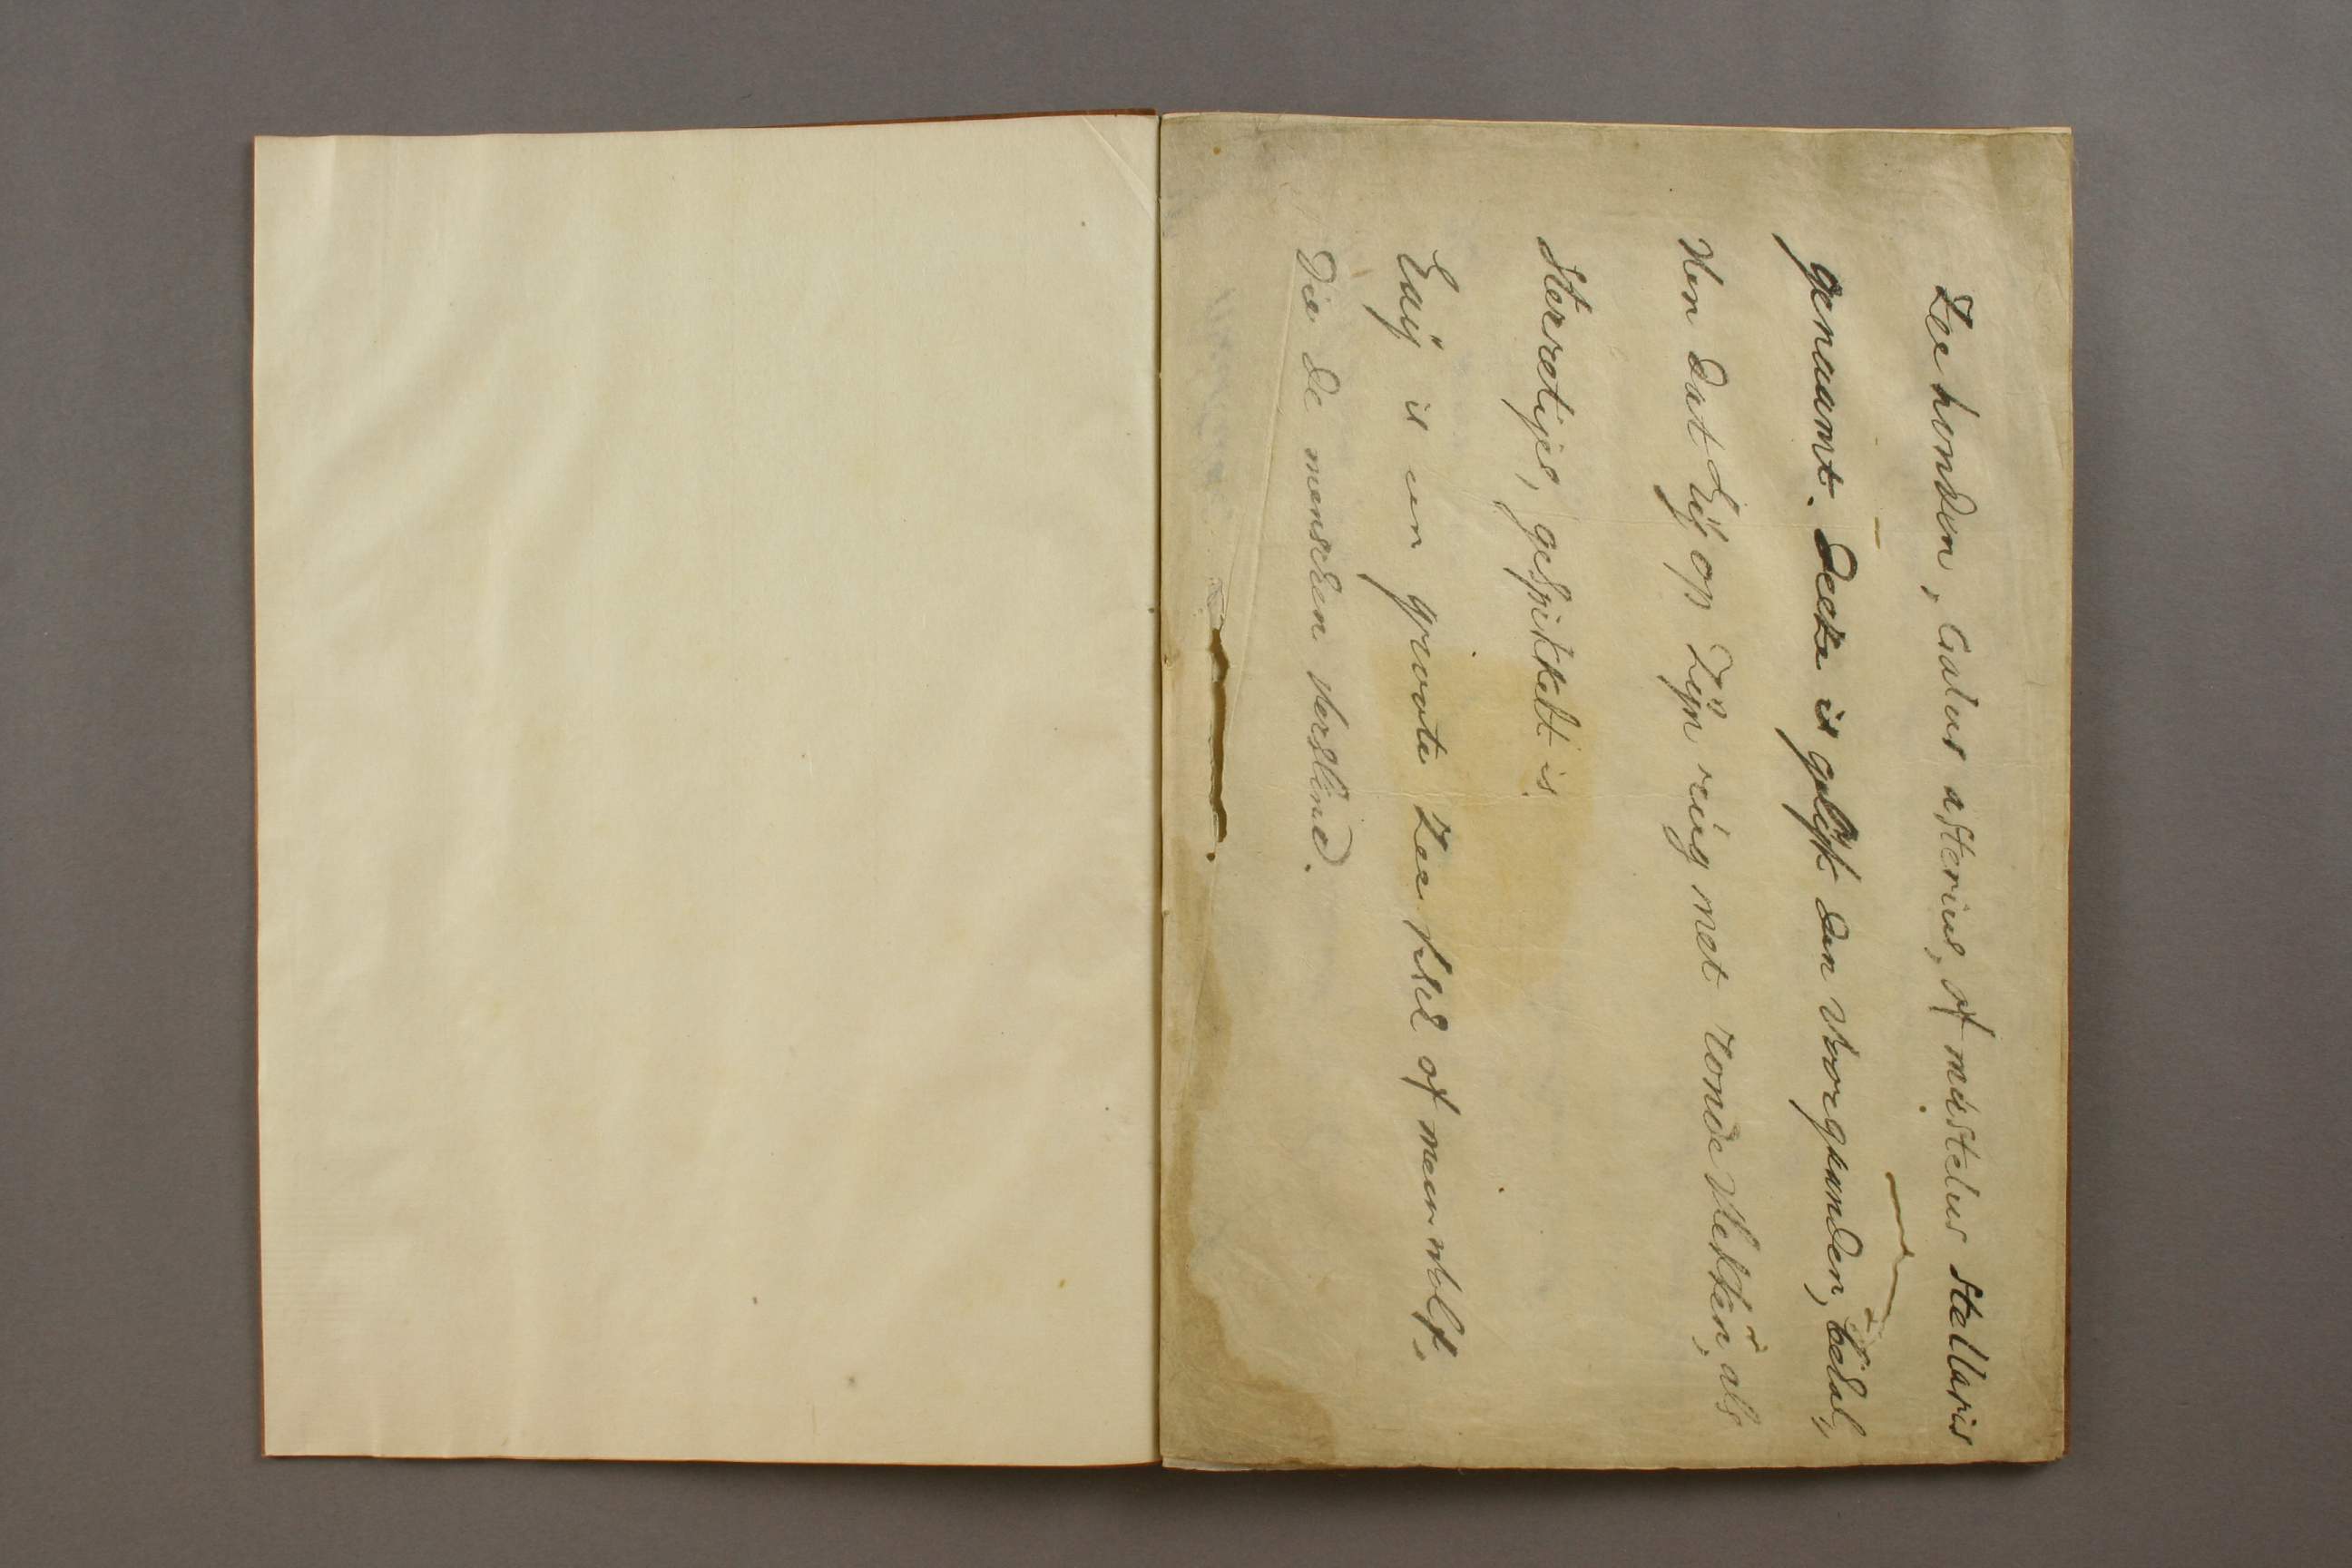 Zee honden, Galeus asterius, of mustelus stellaris
genaamt. Deeze is gelijk den voorgaanden, behal,,
ven dat hij op zijn rúig met ronde vlekken, als
sterretjes, gespikkelt is.
Haij is een groote zee visch of meerwolf,
Die de menschen verslind.